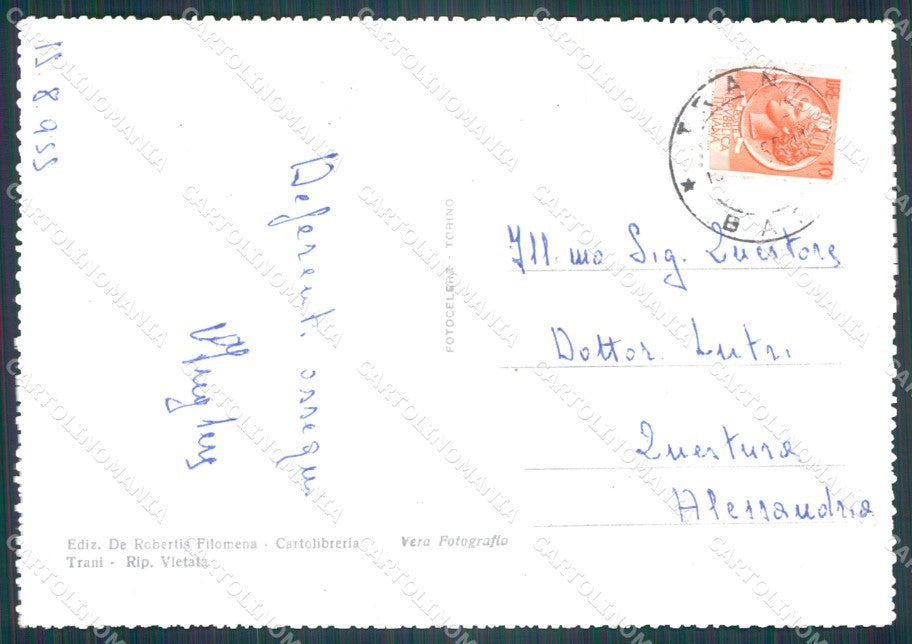 12.8.955
Deferenti ossequi
FOTOCELERE - TORINO
Ediz. De Robertis Filomena - Cartolibreria
Trani - Rip. Vietata
Vera Fotografia
LIRE 10
REPUBBLICA
ITALIANA
TRANI
BA
Ill.mo Sig. Questore
Dottor. Lutri
Questura
Alessandria
CARTOLINOMANIA